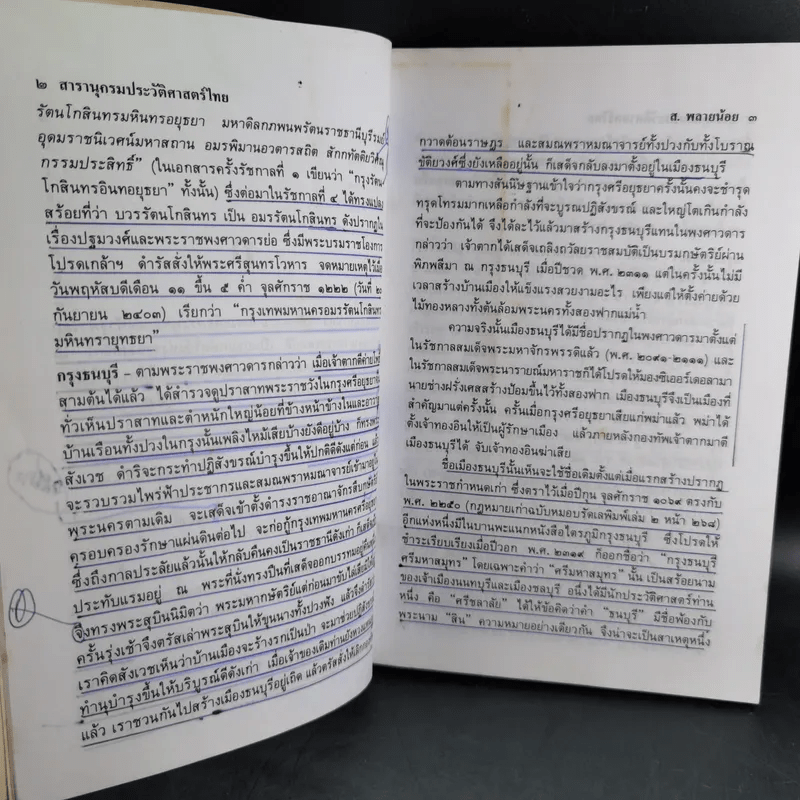 ๒ สารานุกรมประวัติศาสตร์ไทย
รัตนโกสินทรมหินทรอยุธยา มหาดิลกภพนพรัตนราชธานีบุรีรม
อุดมราชนิเวศน์มหาสถาน อมรพิมานอวตารสถิต สักกทัตติยวิศ
กรรมประสิทธิ์” (ในเอกสารครั้งรัชกาลที่ ๑ เขียนว่า “กรุงรัตน
โกสินทรอินทอยุธยา” ทั้งนั้น) ซึ่งต่อมาในรัชกาลที่ ๔ ได้ทรงแปลง
สร้อยที่ว่า บวรรัตนโกสินทร เป็น อมรรัตนโกสินทร ดังปรากฏใน
เรื่องปฐมวงศ์และพระราชพงศาวดารย่อ ซึ่งมีพระบรมราชโองการ
โปรดเกล้าฯ ดำรัสสั่งให้พระศรีสุนทรโวหาร จดหมายเหตุไว้เมื่อ
วันพฤหัสบดีเดือน ๑๑ ขึ้น ๕ ค่ำ จุลศักราช ๑๒๒๒ (วันที่ ๒๐
กันยายน ๒๔๐๓) เรียกว่า “กรุงเทพมหานครอมรรัตนโกสินทร
มหินทรายุทธยา”
กรุงธนบุรี – ตามพระราชพงศาวดารกล่าวว่า เมื่อเจ้าตากตีค่ายโพธิ์
สามต้นได้แล้ว ได้สำรวจดูปราสาทพระราชวังในกรุงศรีอยุธยา
ทั่วเห็นปราสาทและตำหนักใหญ่น้อยที่ข้างหน้าข้างในและอาวาส
บ้านเรือนทั้งปวงในกรุงนั้นเพลิงไหม้เสียบ้างยังดีอยู่บ้าง ก็ทรงพระ
สังเวช ดำริจะกระทำปฏิสังขรณ์บำรุงขึ้นให้ปกติดีดังแต่ก่อน แล้ว
จะรวบรวมไพร่ฟ้าประชากรและสมณพราหมณาจารย์เข้ามาอยู่ใน
พระนครตามเดิม จะเสด็จเข้าตั้งดำรงราชอาณาจักรสืบกษัตริย์
ครอบครองรักษาแผ่นดินต่อไป จะก่อกู้กรุงเทพมหานครศรีอยุธยา
ซึ่งถึงกาลประลัยแล้วนั้นให้กลับคืนคงเป็นราชธานีดังเก่า
ประทับแรมอยู่ ณ พระที่นั่งทรงปืนที่เสด็จออกบรรทมอยู่คืนหนึ่ง
จึงทรงพระสุบินนิมิตว่า พระมหากษัตริย์แต่ก่อนมาขับไล่เสียไม่ให้อยู่
ครั้นรุ่งเช้าจึงตรัสเล่าพระสุบินให้ขุนนางทั้งปวงฟัง แล้วจึงดำรัส
เราคิดสังเวชเห็นว่าบ้านเมืองจะร้างรกเป็นป่า จะมาช่วยปฏิสังขรณ์
ทำนุบำรุงขึ้นให้บริบูรณ์ดีดังเก่า เมื่อเจ้าของเดิมท่านยังหวงแหน
แล้ว เราชวนกันไปสร้างเมืองธนบุรีอยู่เถิด แล้วตรัสสั่งให้เลิก
ส. พลายน้อย ๓
กวาดต้อนราษฎร และสมณพราหมณาจารย์ทั้งปวงกับทั้งโบราณ
ขัติยวงศ์ซึ่งยังเหลืออยู่นั้น ก็เสด็จกลับลงมาตั้งอยู่ในเมืองธนบุรี
ตามทางสันนิษฐานเข้าใจว่ากรุงศรีอยุธยาครั้งนั้นคงจะชำรุด
ทรุดโทรมมากเหลือกำลังที่จะบูรณปฏิสังขรณ์ และใหญ่โตเกินกำลัง
ที่จะป้องกันได้ จึงได้ละไว้แล้วมาสร้างกรุงธนบุรีแทนในพงศาวดาร
กล่าวว่า เจ้าตากได้เสด็จเถลิงถวัลยราชสมบัติเป็นบรมกษัตริย์ผ่าน
พิภพสีมา ณ กรุงธนบุรี เมื่อปีชวด พ.ศ. ๒๓๑๑ แต่ในครั้งนั้นไม่มี
เวลาสร้างบ้านเมืองให้แข็งแรงสวยงามอะไร เพียงแต่ให้ตั้งค่ายด้วย
ไม้ทองหลางทั้งต้นล้อมพระนครทั้งสองฟากแม่น้ำ
ความจริงนั้นเมืองธนบุรีได้มีชื่อปรากฏในพงศาวดารมาตั้งแต่
ในรัชกาลสมเด็จพระมหาจักรพรรดิแล้ว (พ.ศ. ๒๐๙๑-๒๑๑๑) และ
ในรัชกาลสมเด็จพระนารายณ์มหาราชก็ได้โปรดให้มองซิเออร์เดอลามา
นายช่างฝรั่งเศสสร้างป้อมขึ้นไว้ทั้งสองฟาก เมืองธนบุรีจึงเป็นเมืองที่
สำคัญมาแต่ครั้งนั้น ครั้นเมื่อกรุงศรีอยุธยาเสียแก่พม่าแล้ว พม่าได้
ตั้งเจ้าทองอินให้เป็นผู้รักษาเมือง แล้วภายหลังกองทัพเจ้าตากมาตี
เมืองธนบุรีได้ จับเจ้าทองอินฆ่าเสีย
ชื่อเมืองธนบุรีนั้นเห็นจะใช้ชื่อเดิมตั้งแต่เมื่อแรกสร้างปรากฏ
ในพระราชกำหนดเก่า ซึ่งตราไว้เมื่อปีกุน จุลศักราช ๑๐๖๙ ตรงกับ
พ.ศ. ๒๒๕๐ (กฎหมายเก่าฉบับหมอบรัดเลพิมพ์เล่ม ๒ หน้า ๒๖๘)
อีกแห่งหนึ่งมีในบานพะแนกหนังสือไตรภูมิกรุงธนบุรี ซึ่งโปรดให้
ชำระเรียบเรียงเมื่อปีวอก พ.ศ. ๒๓๑๙ ก็ออกชื่อว่า “กรุงธนบุรี
ศรีมหาสมุทร” โดยเฉพาะคำว่า “ศรีมหาสมุทร” นั้น เป็นสร้อยนาม
ของเจ้าเมืองนนทบุรีและเมืองชลบุรี อนึ่งได้มีนักประวัติศาสตร์ท่าน
หนึ่ง คือ “ศรีชลาลัย” ได้ให้ข้อคิดว่าคำ “ธนบุรี” มีชื่อพ้องกับ
พระนาม “สิน” ความหมายอย่างเดียวกัน จึงน่าจะเป็นสาเหตุหนึ่ง